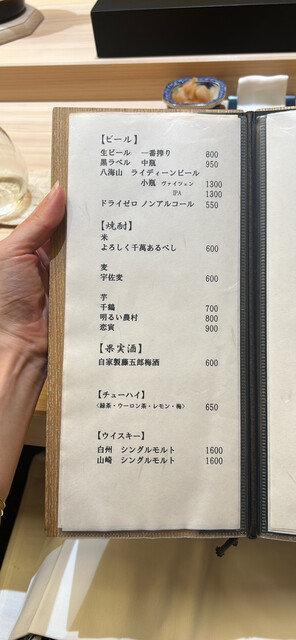 【ビール】
生ビール 一番搾り 800
黒ラベル 中瓶 950
八海山 ライディーンビール
小瓶 ヴァイツェン 1300
IPA 1300
ドライゼロ ノンアルコール 550
【焼酎】
米
よろしく千萬あるべし 600
麦
宇佐麦 600
芋
千鶴 700
明るい農村 800
恋寅 900
【果実酒】
自家製藤五郎梅酒 600
【チューハイ】
〈緑茶・ウーロン茶・レモン・梅〉 650
【ウイスキー】
白州 シングルモルト 1600
山崎 シングルモルト 1600